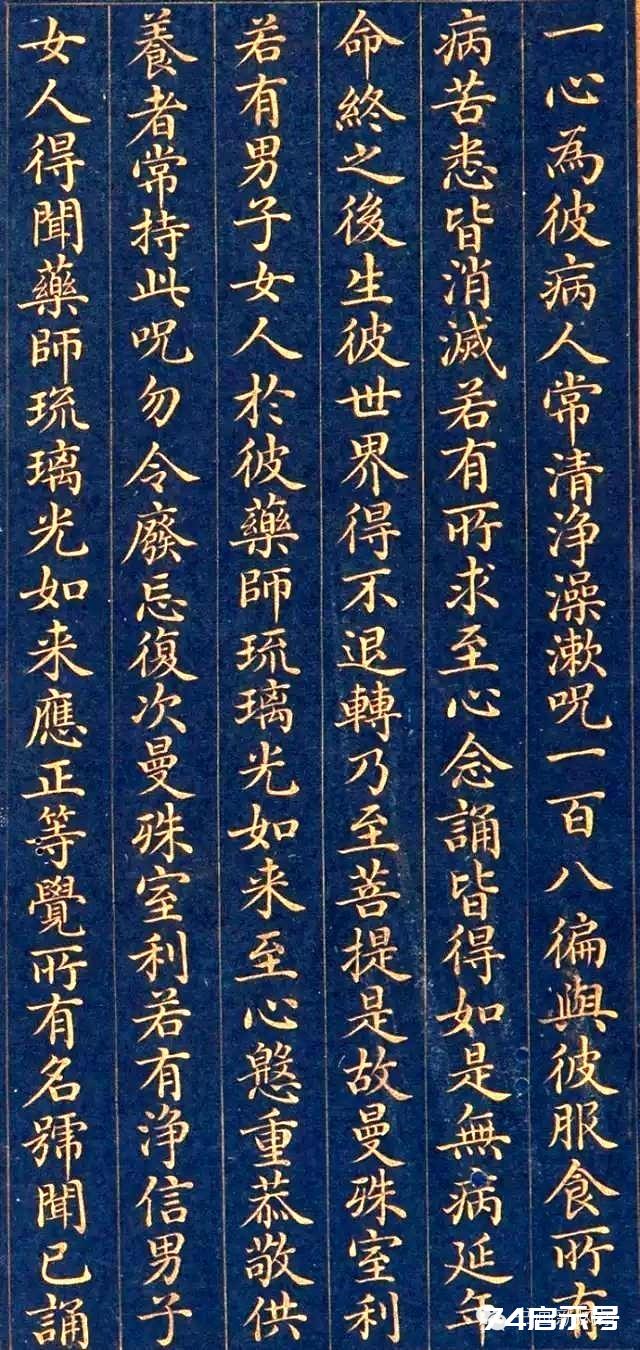 一心為彼病人常清浄澡漱呪一百八徧與彼服食所有
病苦悉皆消滅若有所求至心念誦皆得如是無病延年
命終之後生彼世界得不退轉乃至菩提是故曼殊室利
若有男子女人於彼藥師琉璃光如来至心慇重恭敬供
養者常持此呪勿令廢忘復次曼殊室利若有浄信男子
女人得聞藥師琉璃光如来應正等覺所有名號聞已誦
74启示号